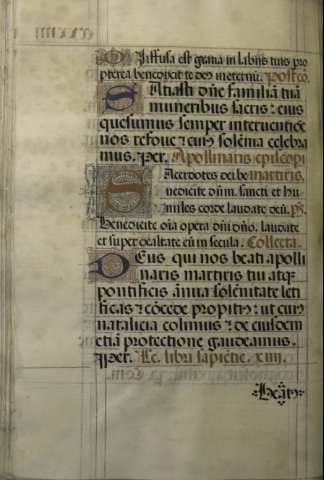 Diffusa est gratia in labijs tuis pro
pterea benedixit te deꝰ in eternū. Postco.
Satiasti dñe familiā tuā
muneribus sacris: eius
quesumus semper interuentiōe
nos refoue: cuiꝰ solēnia celebra
mus. Per. Apollinaris episcopi
Sacerdotes dei be martiris.
nedicite dñm. sancti et hu
miles corde laudate deū. ps.
Benedicite oīa opera dñi dño. laudate
et super exaltate eū in secula. Collecta.
Deus qui nos beati apolli
naris martiris tui atqꝫ
pontificis ānua solēnitate leti
ficas: cōcede propitiꝰ: ut cuiꝰ
natalicia colimus: de eiusdem
etiā protectione gaudeamus.
Per. Lc. libri sapiētie. xiiij.
Beatꝰ